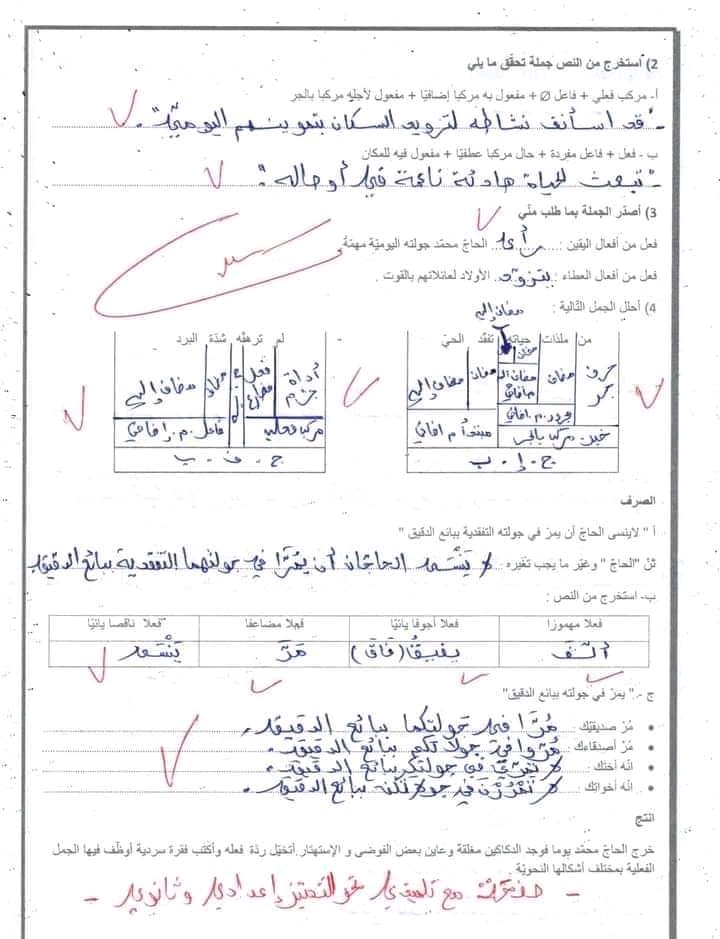 2) أستخرج من النص جملة تحقّق ما يلي
أ- مركب فعلي + فاعل Ø + مفعول به مركبا إضافيّا + مفعول لأجله مركبا بالجر
- "قد استأنف نشاطه لتزويد السكان بتموينهم اليوميّ".
ب - فعل + فاعل مفردة + حال مركبا عطفيّا + مفعول فيه للمكان
- "تبعث الحياة هادئة ناعمة في أوصاله".
3) أصدّر الجملة بما طلب منّي
فعل من أفعال اليقين : رأى الحاجّ محمّد جولته اليوميّة مهمّة.
فعل من أفعال العطاء : يتزوّد الأولاد لعائلاتهم بالقوت .
4) أحلل الجمل التّالية :
مضاف إليه
من ملذات حياته تفقّد الحيّ
حرف جر
مضاف
مضاف إليه
مضاف
مضاف إليه
مجرور م. إضافي
خبر مركب بالجر
مبتدأ م إضافي
ج . إ . ب
- لم ترهقه شدّة البرد
أداة جزم
فعل مضارع
مضاف
مضاف إليه
مركب فعلي
فاعل م. إضافي
ج . ف . ب
الصرف
أ " لاينسى الحاجّ أن يمرّ في جولته التفقدية ببائع الدقيق "
ثنّ "الحاجّ " وغيّر ما يجب تغيره : لا يَنْسَى الحاجّان أن يمُرّا في جولتهما التفقدية ببائع الدقيق
ب- استخرج من النص :
فعلا مهموزا فعلا أجوفا يائيّا فعلا مضاعفا فعلا ناقصا يائيّا
ألف يفيق (فاق) مَرَّ يَنْسَى
ج -" يمرّ في جولته ببائع الدقيق"
• مُرْ صديقيْك : مُرَّا في جولتكما ببائع الدقيق.
• مُرْ أصدقاءك : مُرّوا في جولاتكم ببائع الدقيق.
• انْه أختك : لا تمُرّي في جولتكِ ببائع الدقيق.
• انْه أخواتك : لا تَمْرُرْنَ في جولاتكنّ ببائع الدقيق.
انتج
خرج الحاجّ محمّد يوما فوجد الدكاكين مغلقة وعاين بعض الفوضى و الإستهتار. أتخيّل ردّة فعله وأكتب فقرة سردية أوظّف فيها الجمل
الفعلية بمختلف أشكالها النحويّة
- مع تلميذي نحو التميّز إعدادي وثانوي -